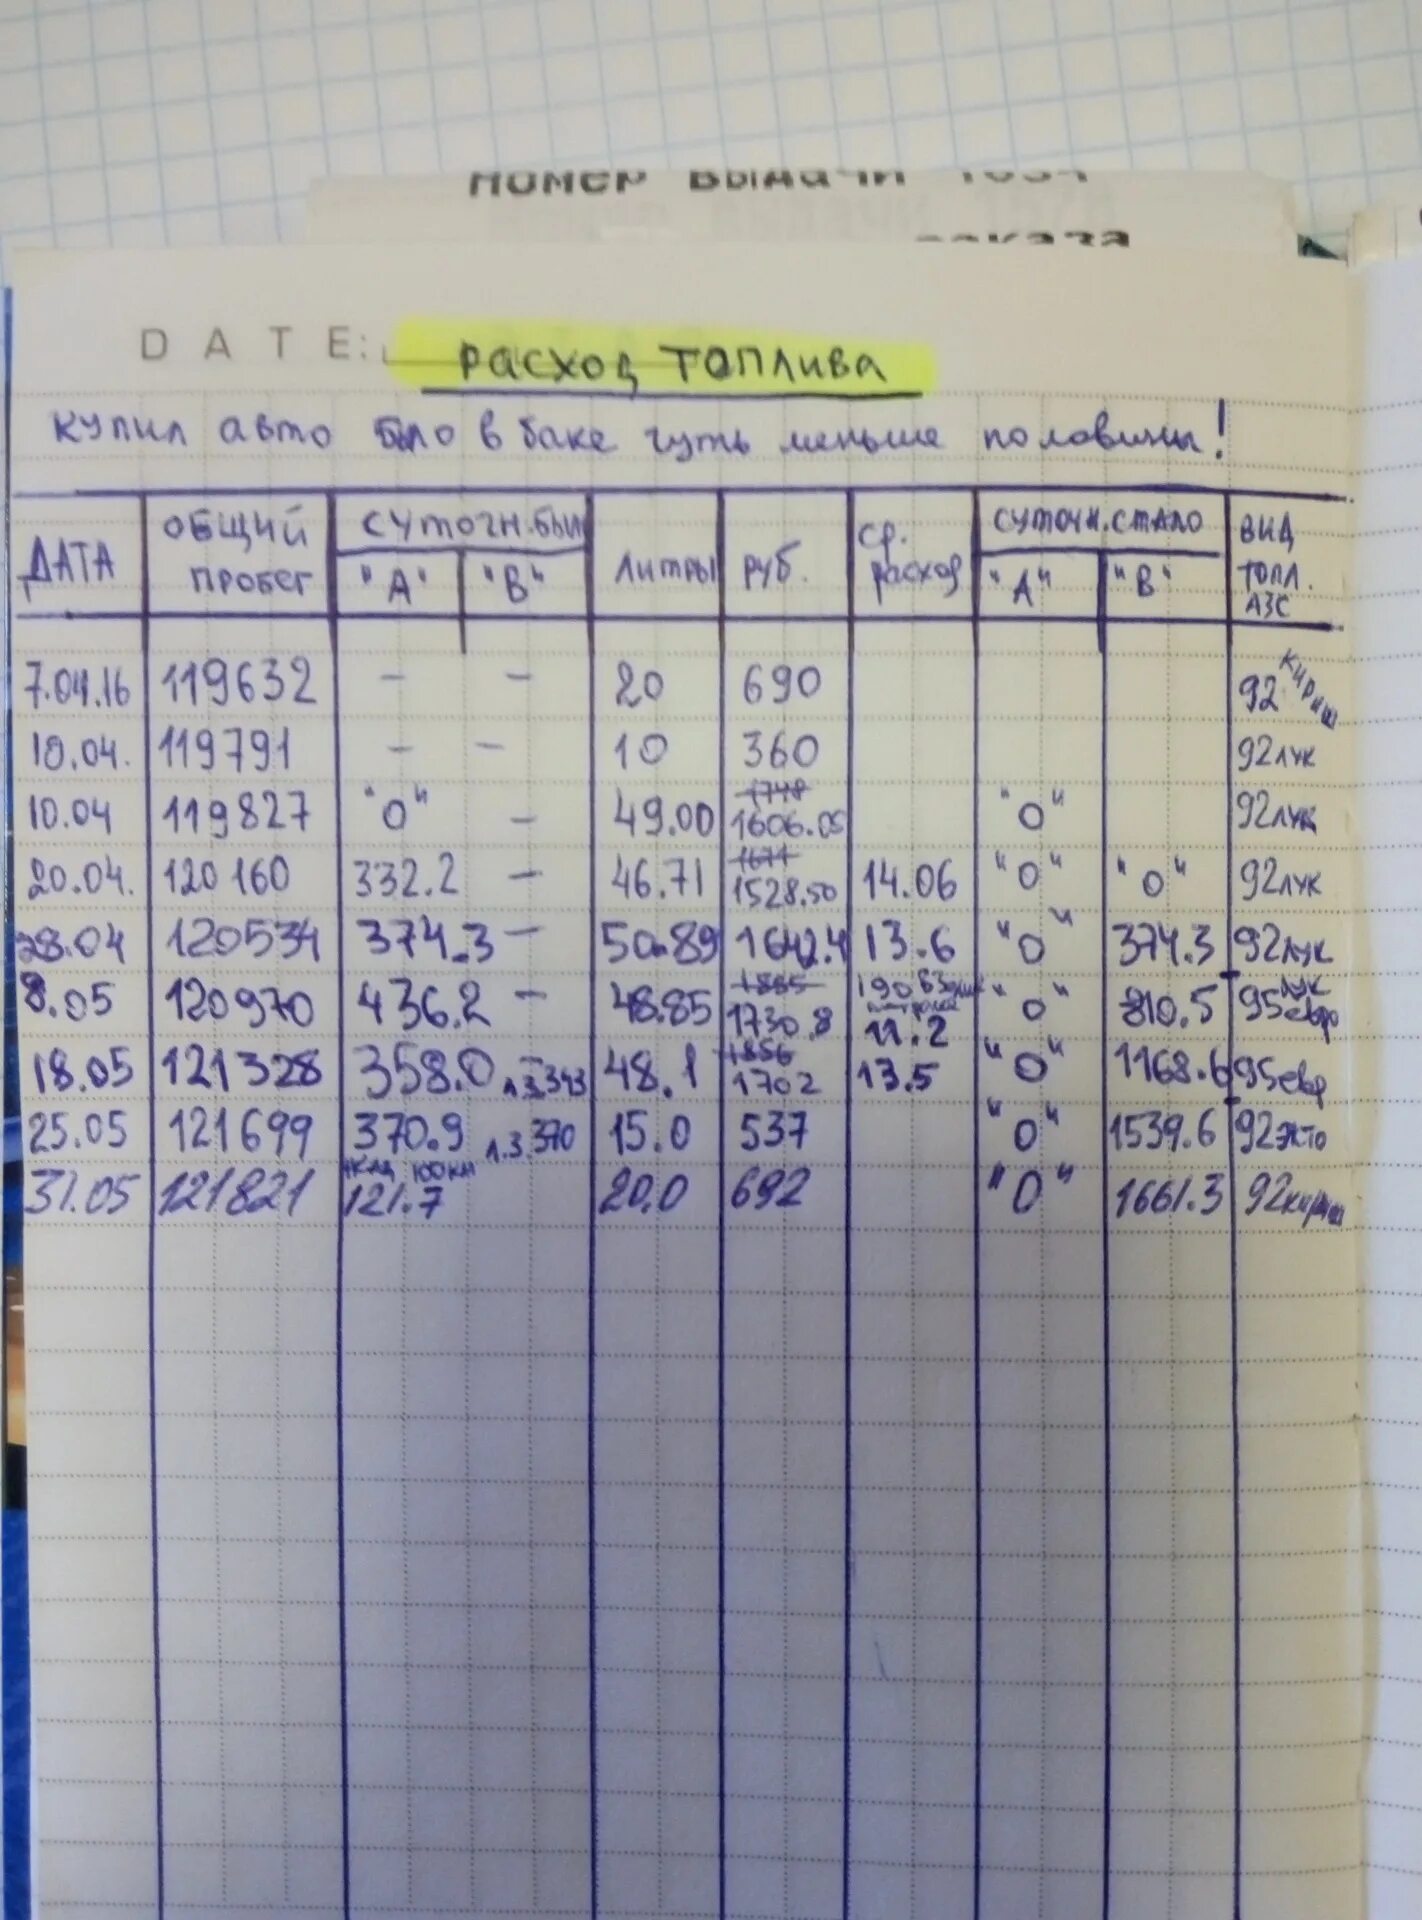 номер выдачи
заказа
DATE:
РАСХОД ТОПЛИВА
купил авто было в баке чуть меньше половины!
ДАТА ОБЩИЙ ПРОБЕГ СУТОЧН.БЫЛ "А" "В" ЛИТРЫ РУБ. СР. РАСХОД СУТОЧН.СТАЛО "А" "В" ВИД ТОПЛ. АЗС
7.04.16 119632 - - 20 690 92 КИРИШ
10.04. 119791 - - 10 360 92 ЛУК
10.04 119827 "0" - 49.00 1748 1606.05 "0" 92 ЛУК
20.04. 120160 332.2 - 46.71 1671 1528.50 14.06 "0" "0" 92 ЛУК
28.04 120534 374.3 - 50.89 1642.4 13.6 "0" 374.3 92 ЛУК
8.05 120970 436.2 - 48.85 1730.8 190 11.2 "0" 810.5 95 ЛУК евро
18.05 121328 358.0 - л.з.343 48.1 1856 1702 13.5 "0" 1168.6 95 евр
25.05 121699 370.9 л.з.370 15.0 537 "0" 1539.6 92 ЭКТО
31.05 121821 100км 121.7 20.0 692 "0" 1661.3 92 кириш